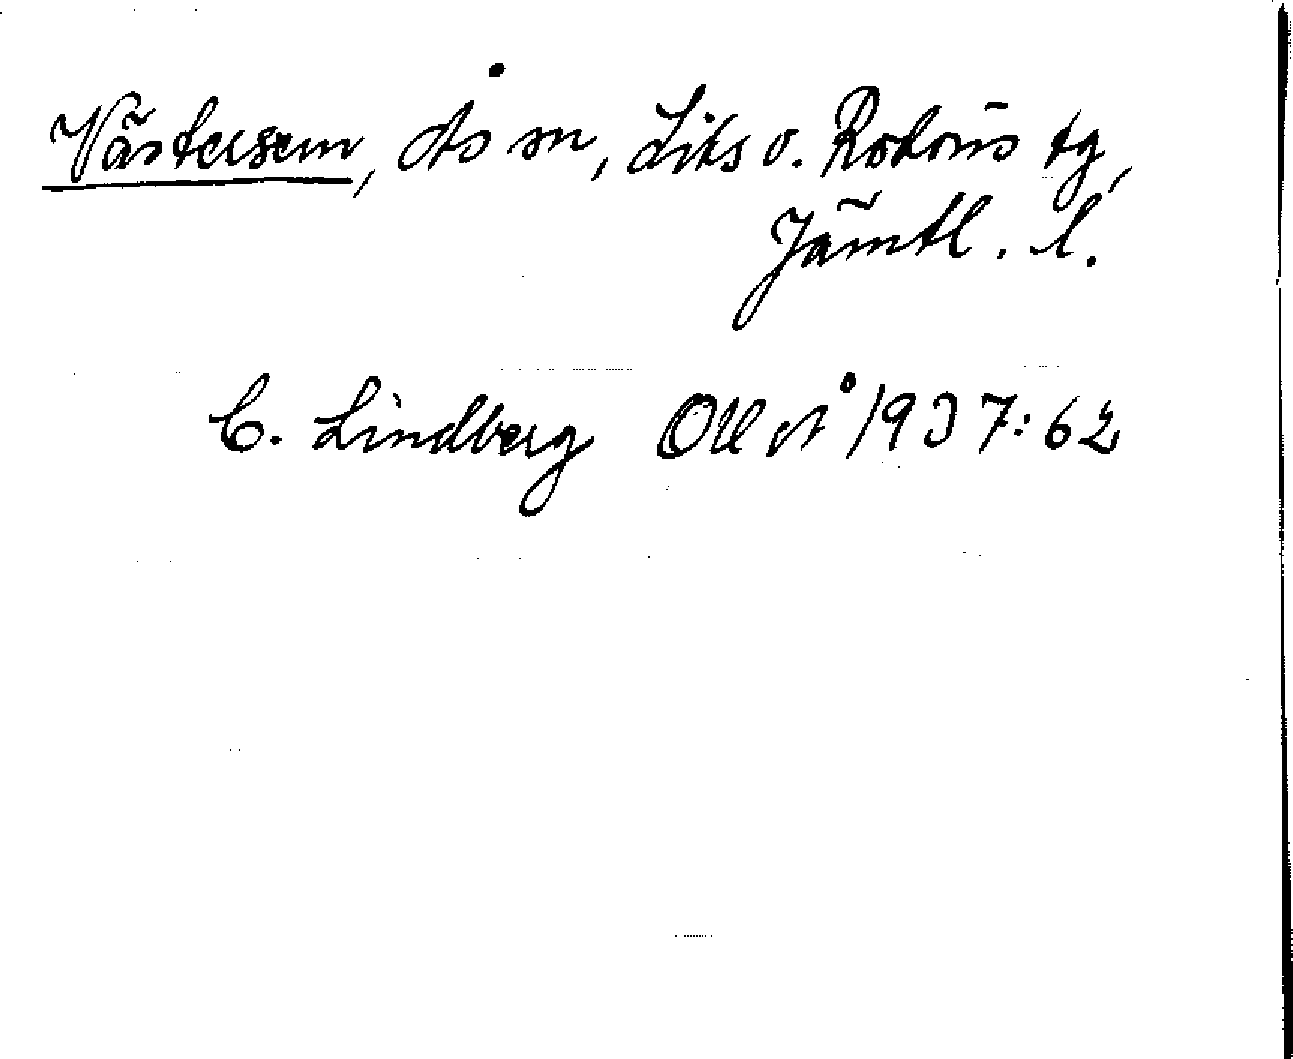 Västersem, Ås sn, Lits o. Rödöns tg,
Jämtl. l.
C. Lindberg OUÅ 1937:62